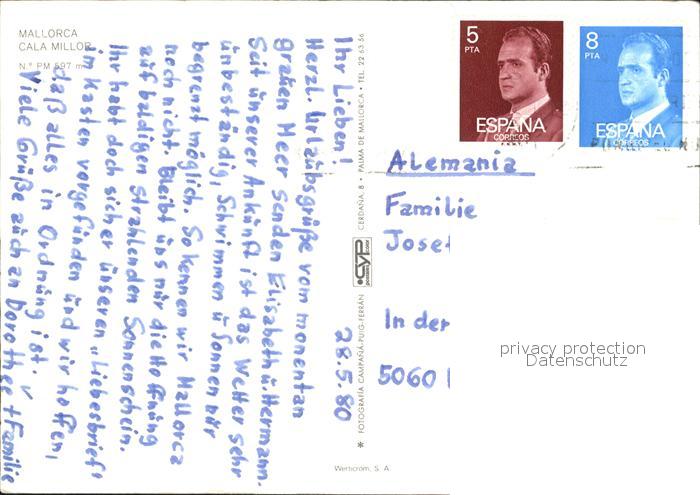 MALLORCA
CALA MILLOR
N.º PM 597
28.5.80
Ihr Lieben!
Herzl. Urlaubsgrüße vom momentan
grauen Meer senden Elisabeth ü Hermann.
Seit unser Ankunft ist das Wetter sehr
unbeständig, Schwimmen ü Sonnen nur
begrenzt möglich. So kennen wir Mallorca
noch nicht. Bleibt uns nur die Hoffnung
auf baldigen strahlenden Sonnenschein.
Ihr habt doch sicher unseren „Liebesbrief"
im Kasten vorgefunden und wir hoffen,
daß alles in Ordnung ist.
Viele Grüße auch an Dorothee + Familie
* FOTOGRAFÍA CAMPAÑÁ-PUIG-FERRÁN
CYP
CERDAÑA, 8 • PALMA DE MALLORCA • TEL. 22 63 56
Werticrom, S. A.
5
PTA
ESPAÑA
CORREOS
F.N.M.T.
8
PTA
ESPAÑA
CORREOS
Alemania
Familie
Josef
In der
5060
privacy protection
Datenschutz